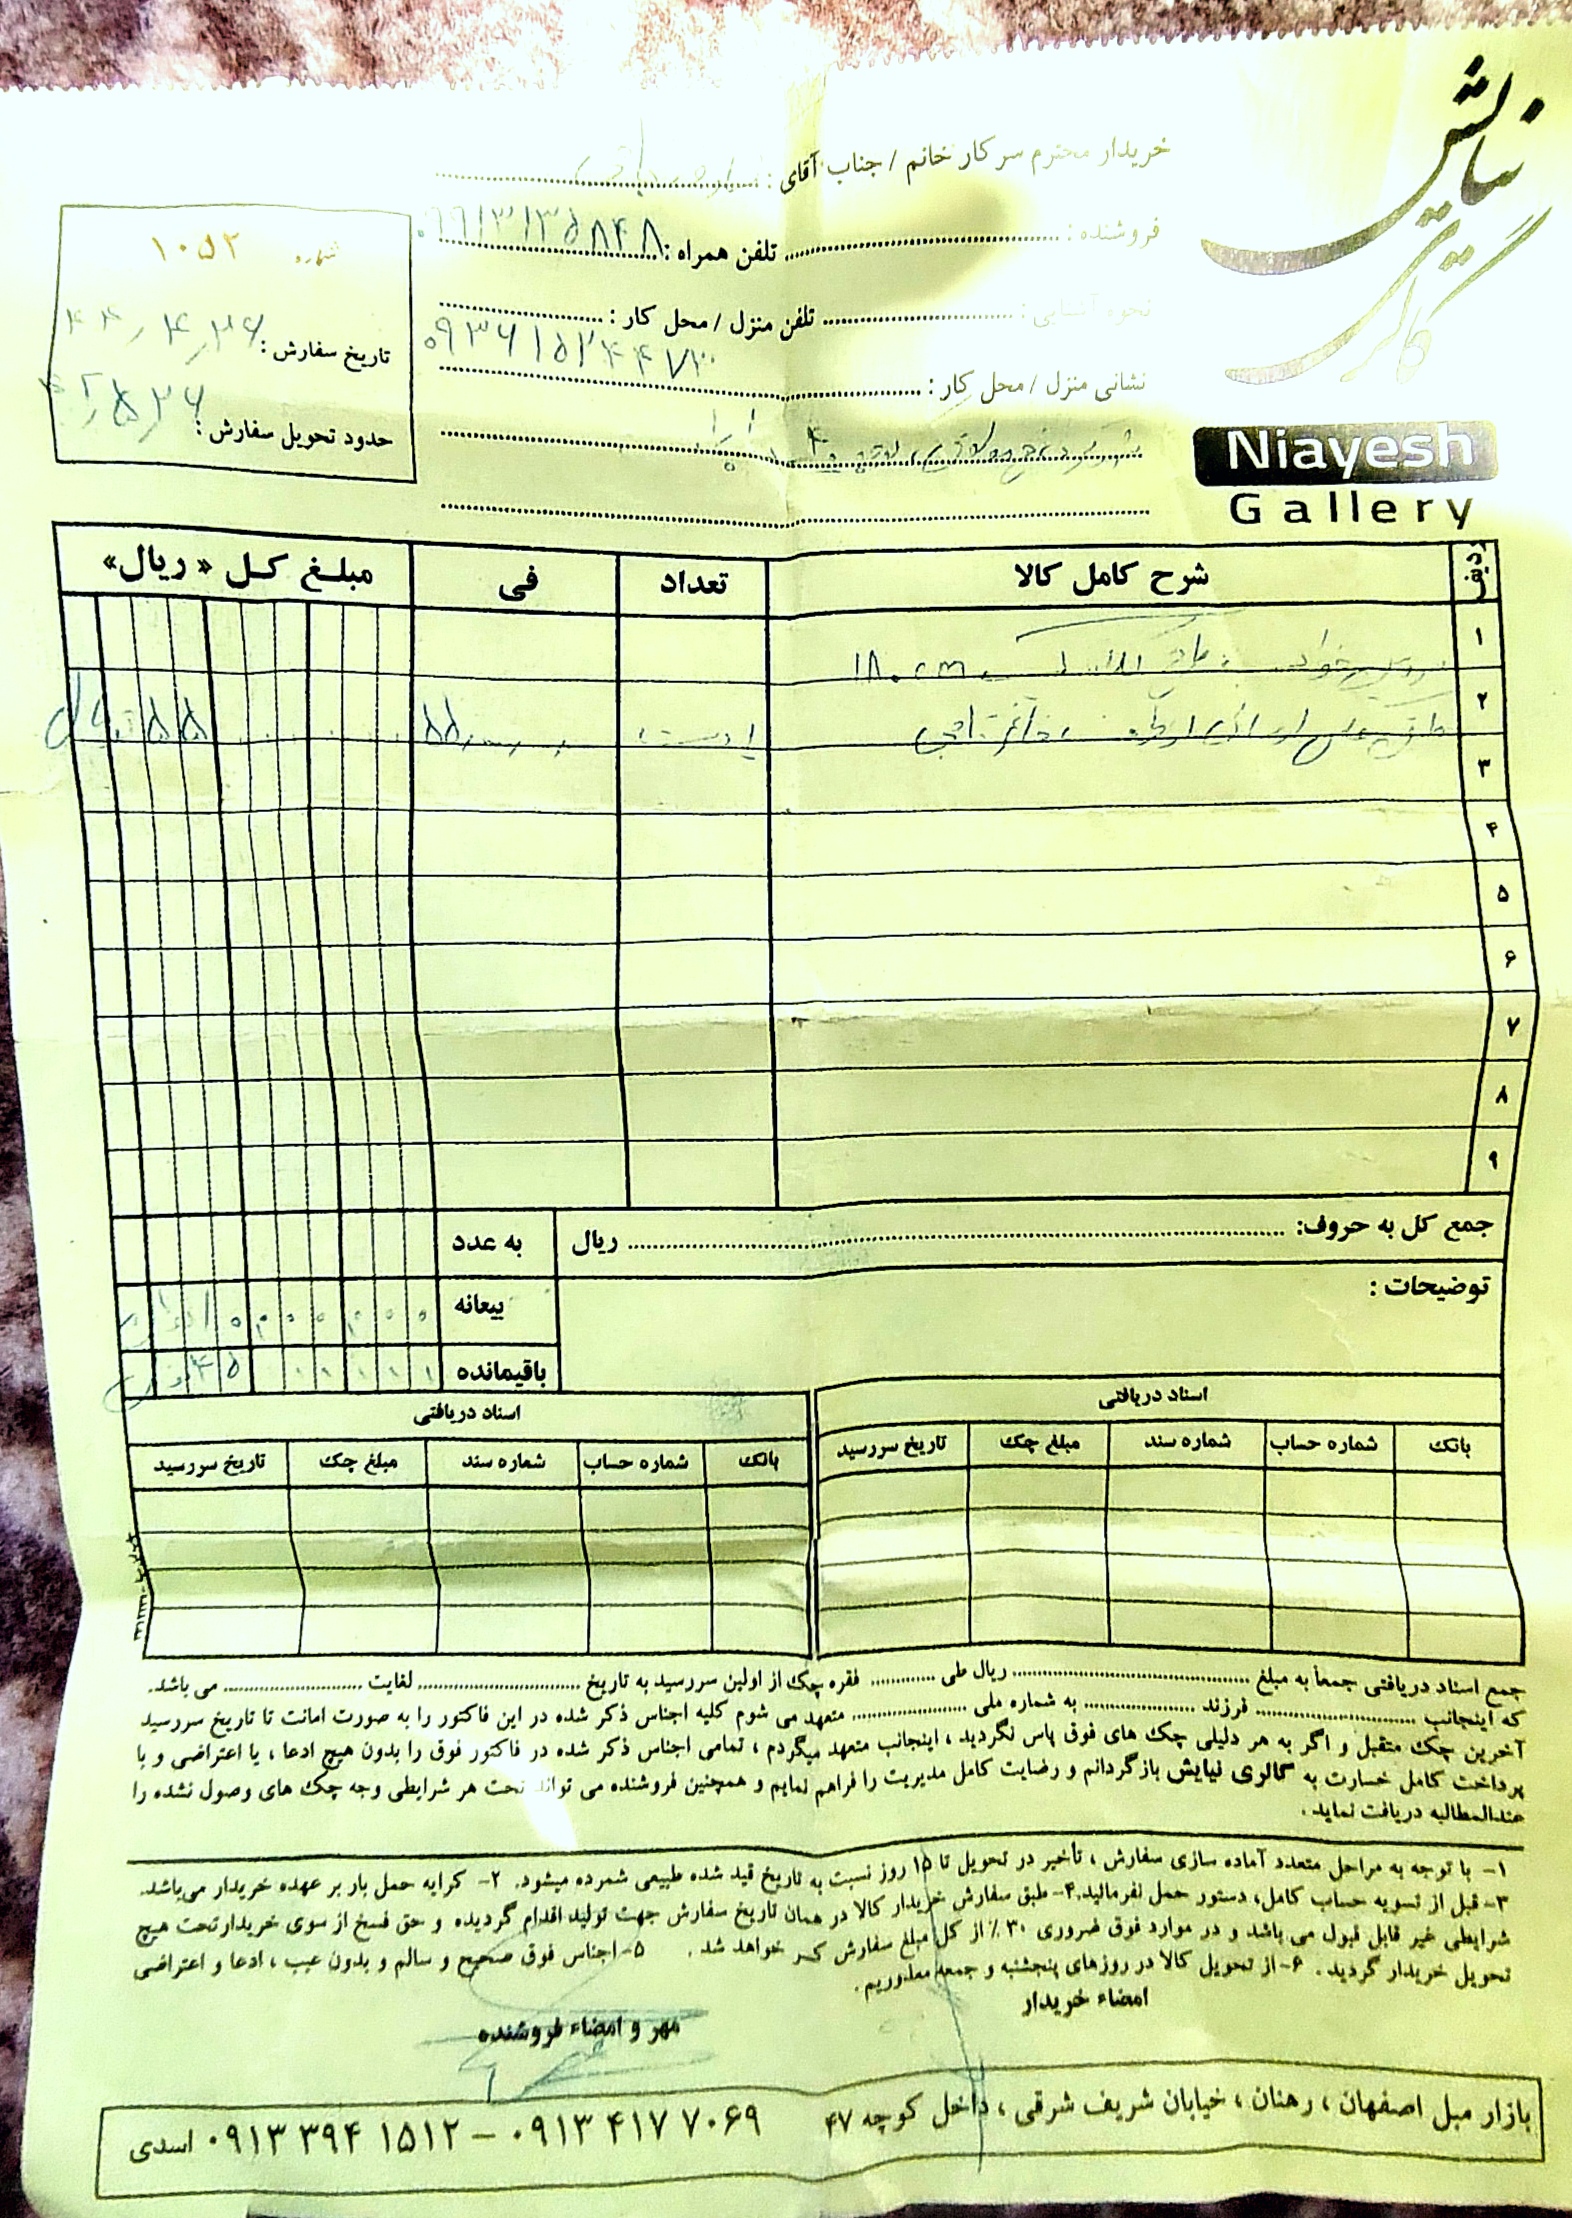 نیایش
گالری
Niayesh
Gallery
خریدار محترم سرکار خانم / جناب آقای :
فروشنده : تلفن همراه : ۰۹۹۱۳۱۳۵۸۴۸
نحوه آشنایی : تلفن منزل / محل کار :
۰۹۳۶۱۵۲۴۴۷۳
نشانی منزل / محل کار :
شماره ۱۰۵۲
تاریخ سفارش :
حدود تحویل سفارش :
ردیف شرح کامل کالا تعداد فی مبلغ کل « ریال»
۱ سرویس خواب ۱۸۰cm
۲
۳
۴
۵
۶
۷
۸
۹
جمع کل به حروف: ریال به عدد
توضیحات : بیعانه
باقیمانده
اسناد دریافتی اسناد دریافتی
بانک شماره حساب شماره سند مبلغ چک تاریخ سررسید بانک شماره حساب شماره سند مبلغ چک تاریخ سررسید
جمع اسناد دریافتی جمعاً به مبلغ ریال طی فقره چک از اولین سررسید به تاریخ لغایت می باشد.
که اینجانب فرزند به شماره ملی متعهد می شوم کلیه اجناس ذکر شده در این فاکتور را به صورت امانت تا تاریخ سررسید
آخرین چک متقبل و اگر به هر دلیلی چک های فوق پاس نگردید ، اینجانب متعهد میگردم ، تمامی اجناس ذکر شده در فاکتور فوق را بدون هیچ ادعا ، یا اعتراضی و با
پرداخت کامل خسارت به گالری نیایش بازگردانم و رضایت کامل مدیریت را فراهم نمایم و همچنین فروشنده می تواند تحت هر شرایطی وجه چک های وصول نشده را
عندالمطالبه دریافت نماید .
۱- با توجه به مراحل متعدد آماده سازی سفارش ، تأخیر در تحویل تا ۱۵ روز نسبت به تاریخ قید شده طبیعی شمرده میشود. ۲- کرایه حمل بار بر عهده خریدار می‌باشد.
۳- قبل از تسویه حساب کامل، دستور حمل نفرمائید. ۴- طبق سفارش خریدار کالا در همان تاریخ سفارش جهت تولید اقدام گردیده و حق فسخ از سوی خریدار تحت هیچ
شرایطی غیر قابل قبول می باشد و در موارد فوق ضروری ۳۰٪ از کل مبلغ سفارش کسر خواهد شد . ۵- اجناس فوق صحیح و سالم و بدون عیب ، ادعا و اعتراضی
تحویل خریدار گردید . ۶- از تحویل کالا در روزهای پنجشنبه و جمعه معذوریم .
امضاء خریدار
مهر و امضاء فروشنده
بازار مبل اصفهان ، رهنان ، خیابان شریف شرقی ، داخل کوچه ۴۷
۰۹۱۳ ۴۱۷ ۷۰۶۹ – ۰۹۱۳ ۳۹۴ ۱۵۱۲ اسدی